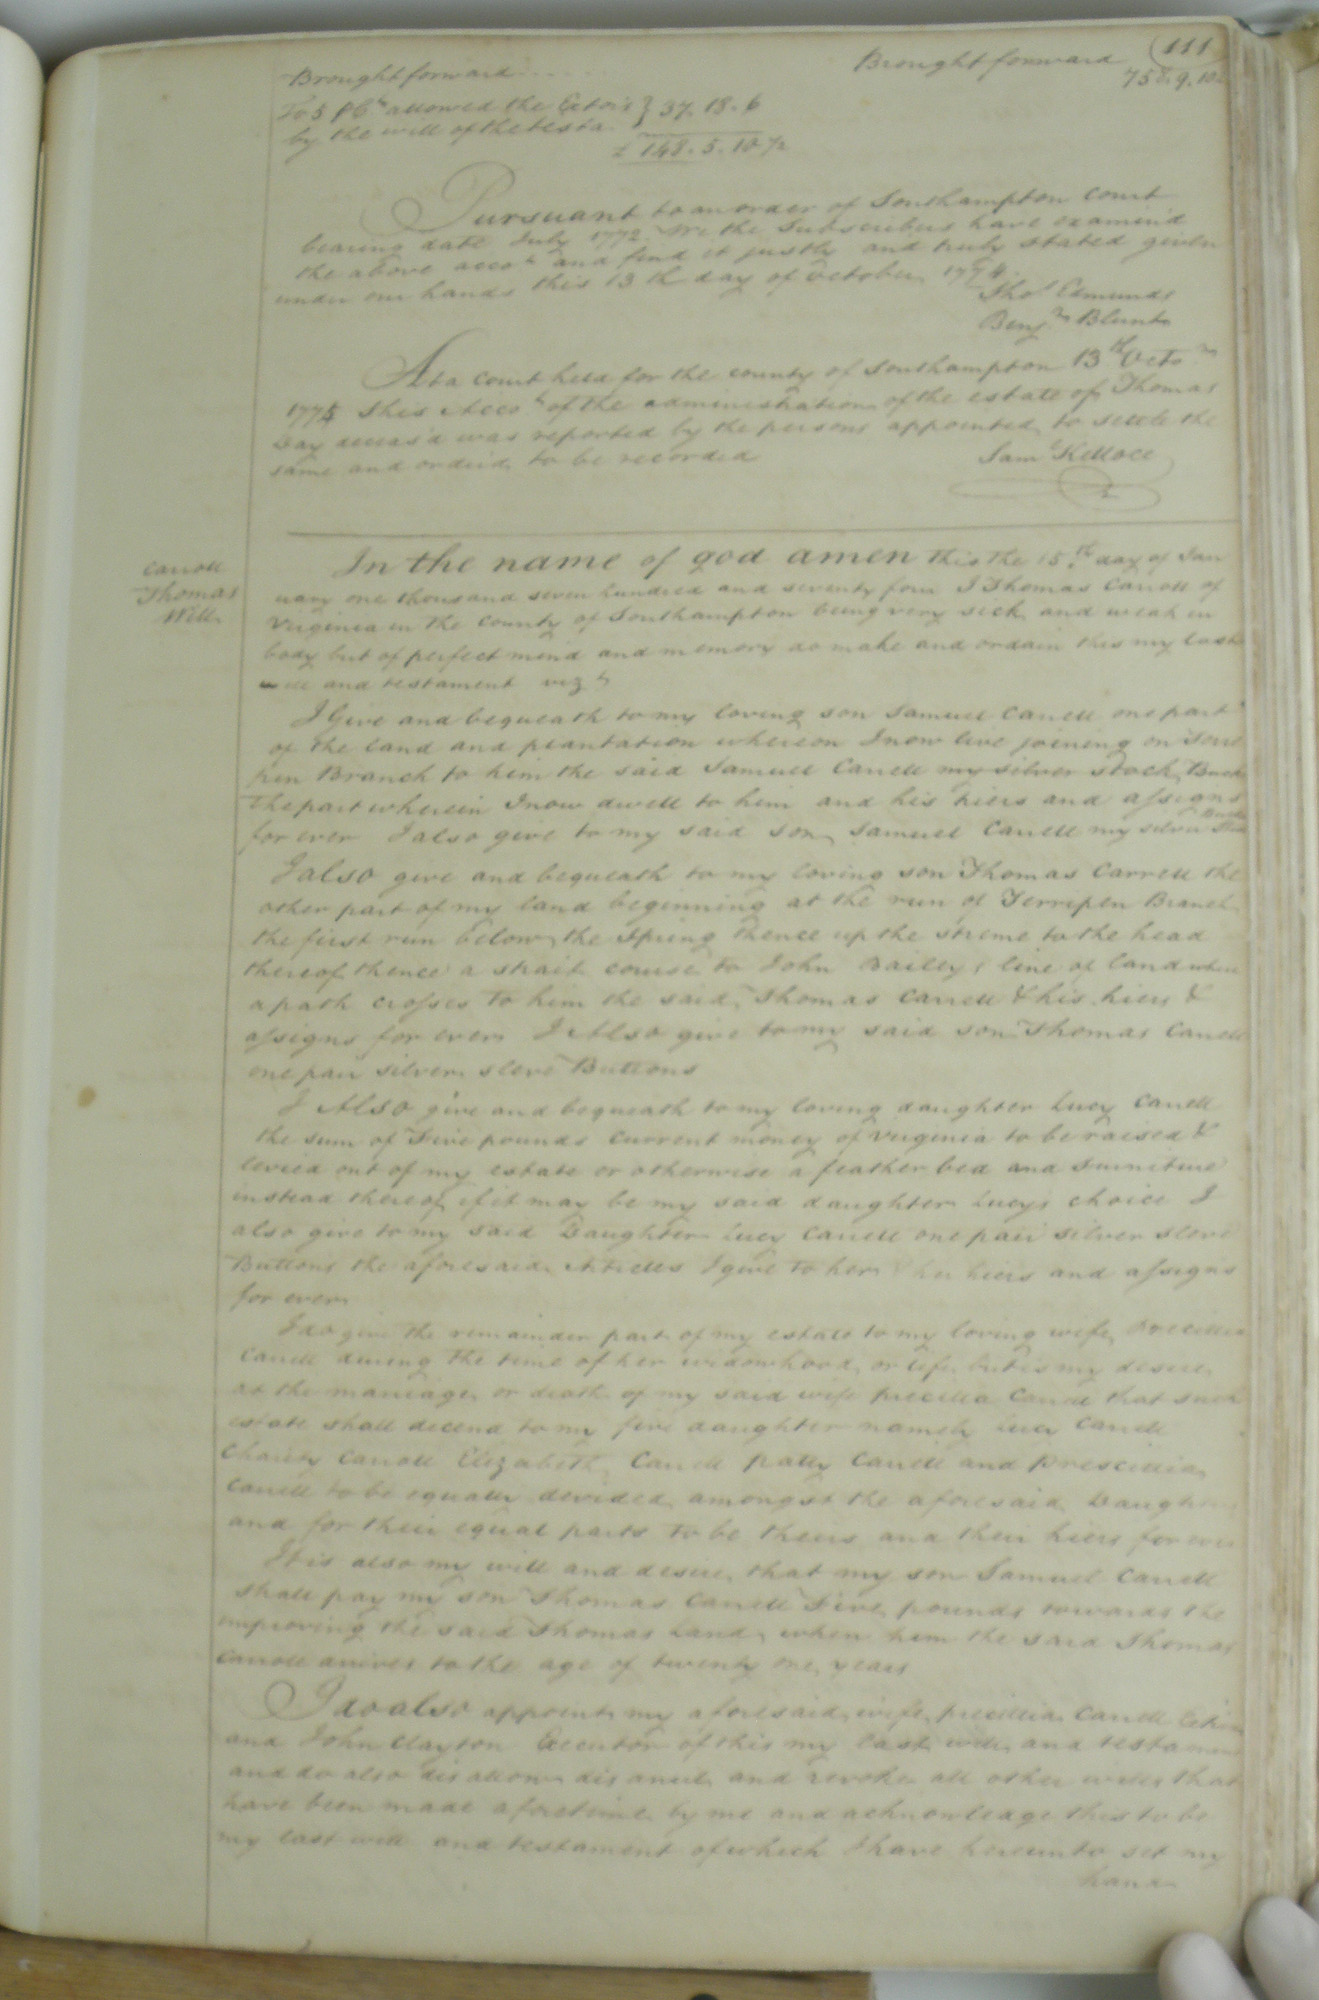 (111)
Brought forward Brought forward
758.9.10
To 5 P Ct allowed the Exctors } 37.18.6
by the will of the testa
£ 148.5.10 1/2
Pursuant to an order of Southampton court
bearing date July 1772 We the Subscribers have examin'd
the above accot and find it justly and truly stated given
under our hands this 13th day of october
Thos Edmunds
Benjn Blunt
At a court held for the county of Southampton 13th Octo
This Accot of the administration of the estate of Thomas
Day deceas'd was reported by the persons appointed to settle the
same and orderd to be recorded
Saml Kelloce
Carroll
Thomas
Will
In the name of god amen this the 15th day of Jan
uary one thousand seven hundred and seventy four I Thomas Carroll of
Virginia in the County of Southampton being very sick and weak in
body but of perfect mind and memory do make and ordain this my last
will and testament vizt
I Give and bequeath to my loving son Samuel Carrell one part
of the land and plantation whereon I now live joining on
pen Branch to him the said Samuel Carrell my silver stock Buck
The part wherein I now dwell to him and his hiers and assigns
for ever I also give to my said son Samuel Carrell my silver Stock
I also give and bequeath to my loving son Thomas Carrell the
other part of my land beginning at the run of Terripen Branch
the first run below the Spring thence up the streme to the head
thereof thence a strait course to John Baileys line of land where
a path crosses to him the said Thomas Carrell & his hiers &
assigns for ever I Also give to my said son Thomas Carrell
one pair silver sleve Buttons
I Also give and bequeath to my loving daughter Lucy Carrell
the sum of Five pounds current money of virginia to be raised &
levied out of my estate or otherwise a feather bed and furniture
instead thereof if it may be my said daughter Lucys choice I
also give to my said Daughter Lucy Carrell one pair silver sleve
Buttons the aforesaid Articles I give to her her hiers and assigns
for ever
I do give the remainder part of my estate to my loving wife Precillia
Carrell during the time of her widowhood or life but is my desire
at the marriage or death of my said wife precilla Carrell that such
estate shall decend to my five daughter namely Lucy Carrell
Charity Carroll Elizabeth Carrell patty Carrell and Prescillia
Carrell to be equally devided amongst the aforesaid Daughters
and for their equal parts to be theirs and their hiers for ever
It is also my will and desire that my son Samuel Carrell
shall pay my son Thomas Carrell Five pounds towards the
improving the said Thomas Land when him the said Thomas
Carroll arrives to the age of twenty one years
I do also appoint my aforesaid wife precillia Carrell
and John Clayton Executor of this my last will and testament
and do also disallow disanul and revoke all other wills that
have been made aforetime by me and acknowledge this to be
my last will and testament of which I have hereunto set my
hand